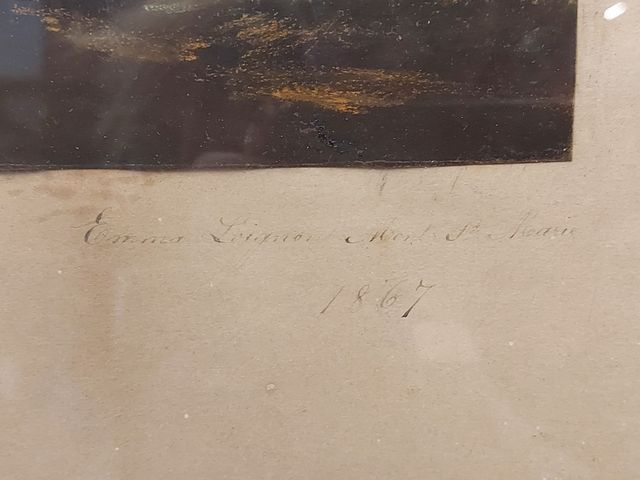 Emma Loignon Mont Ste Marie
1867